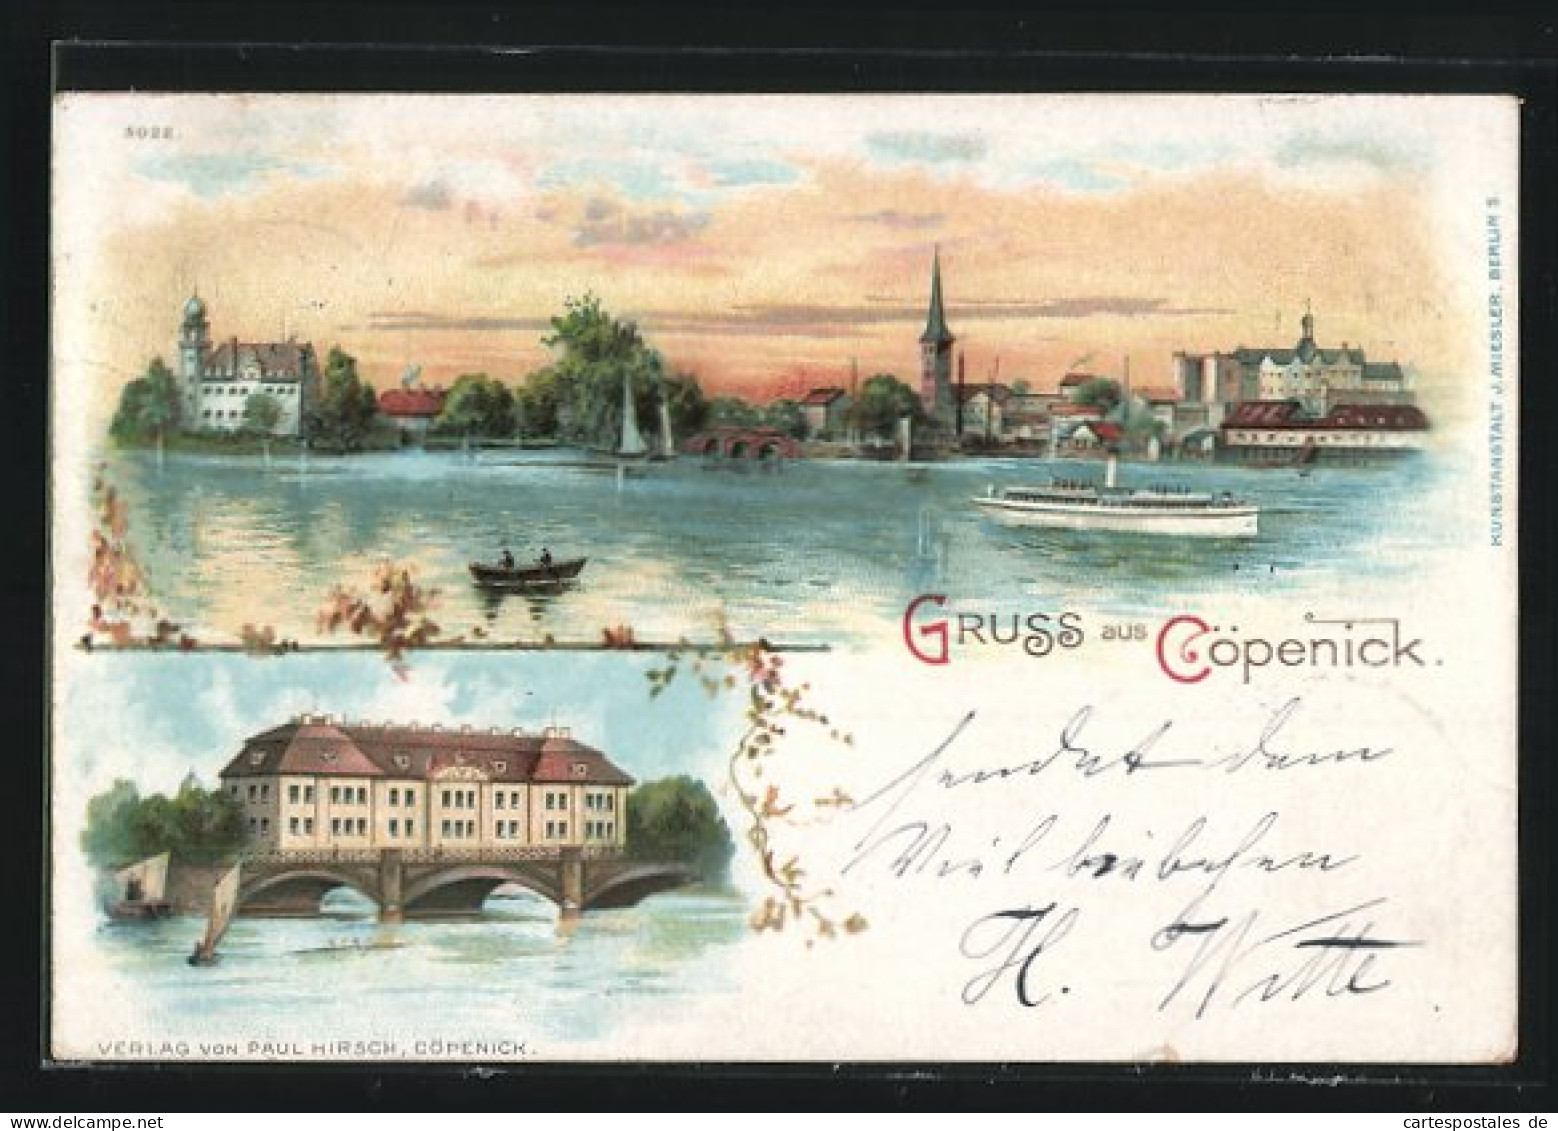 5022.
KUNSTANSTALT J. MIESLER, BERLIN S.
GRUSS aus Cöpenick.
sendet dem
Viel
H. Witte.
VERLAG von PAUL HIRSCH, CÖPENICK.
www.delcampe.net
cartespostales de